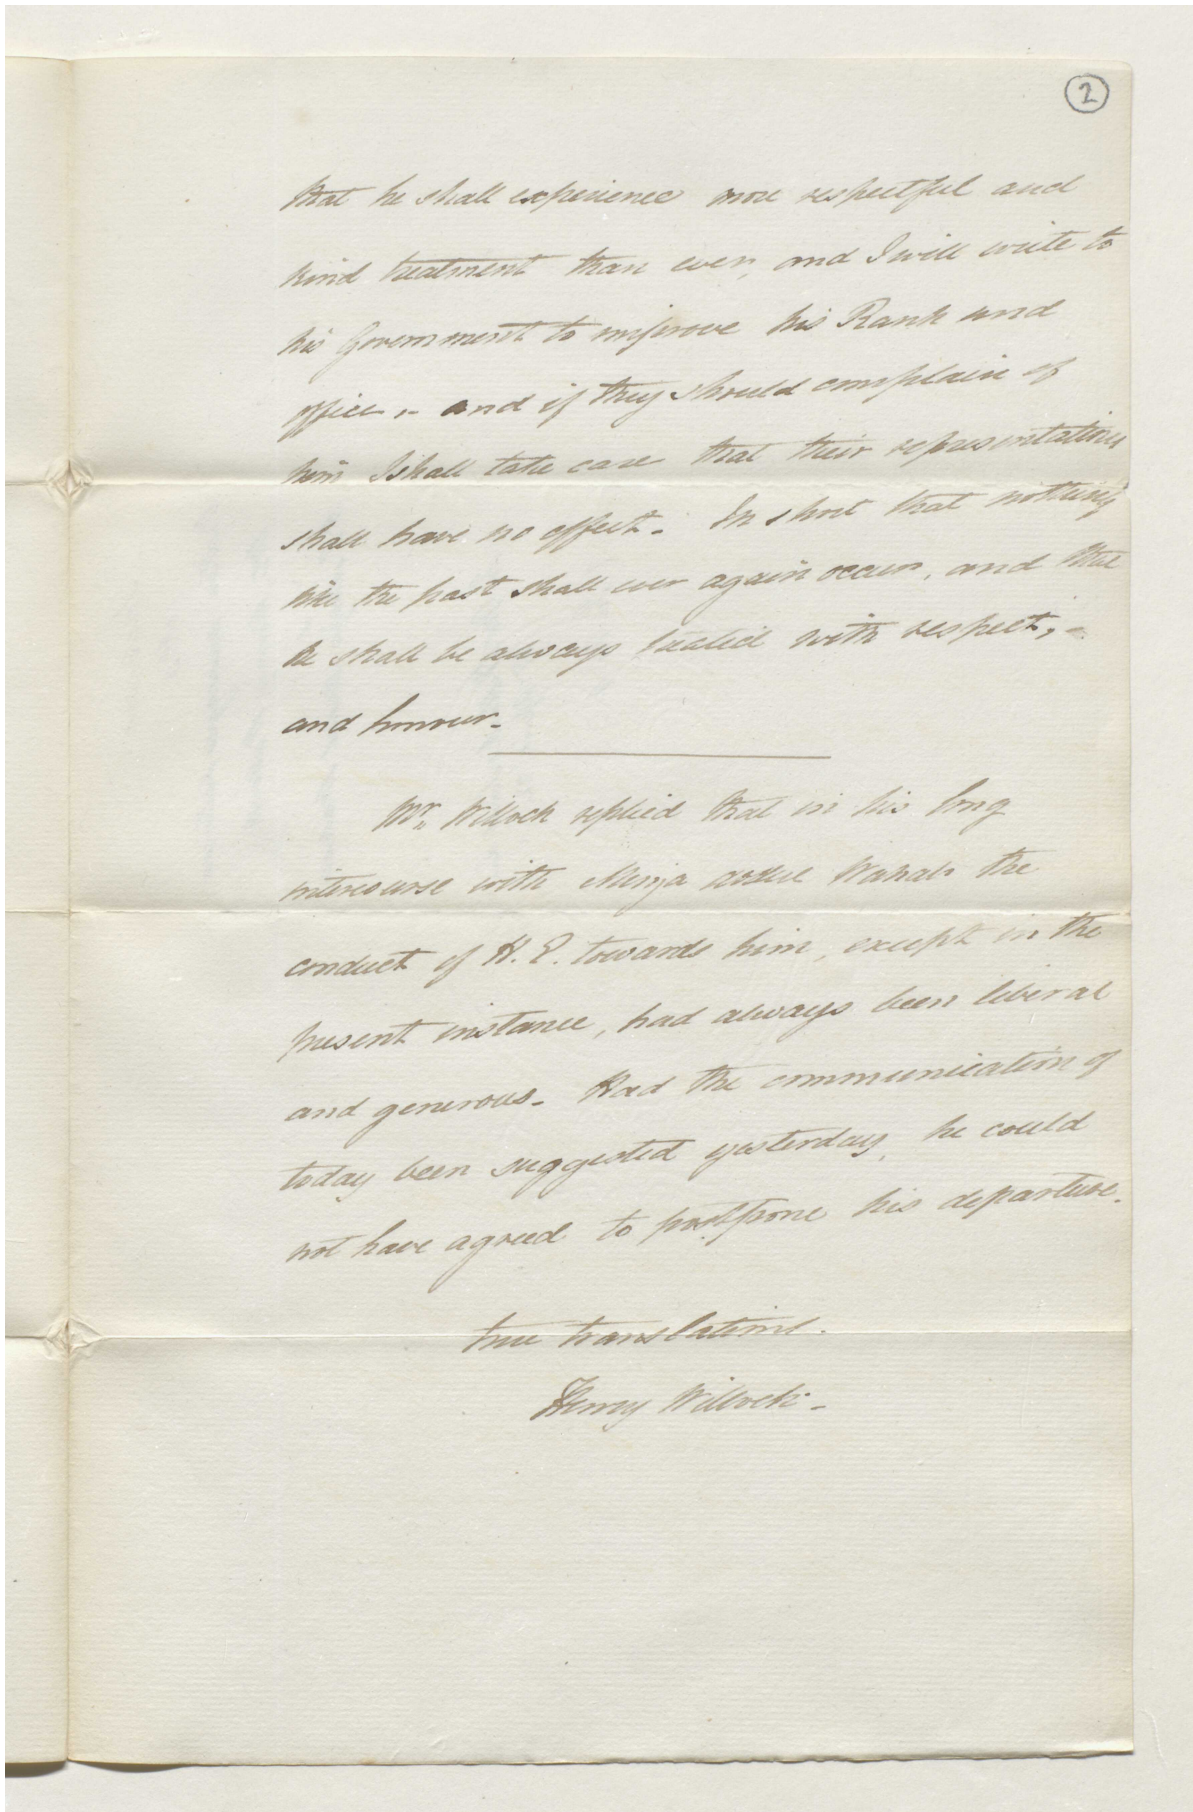 2
that he shall experience more respectful and
kind treatment than ever, and I will write to
his Government to improve his Rank and
office,- and if they should complain of
him I shall take care that their representations
shall have no effect. In short that nothing
like the past shall ever again occur, and that
he shall be always treated with respect,-
and honour.
Mr. Willock replied that in his long
intercourse with Mirza Wahab the
conduct of H. E. towards him, except in the
present instance, had always been liberal
and generous. Had the communication of
today been suggested yesterday, he could
not have agreed to postpone his departure.
true translation.
Henry Willock